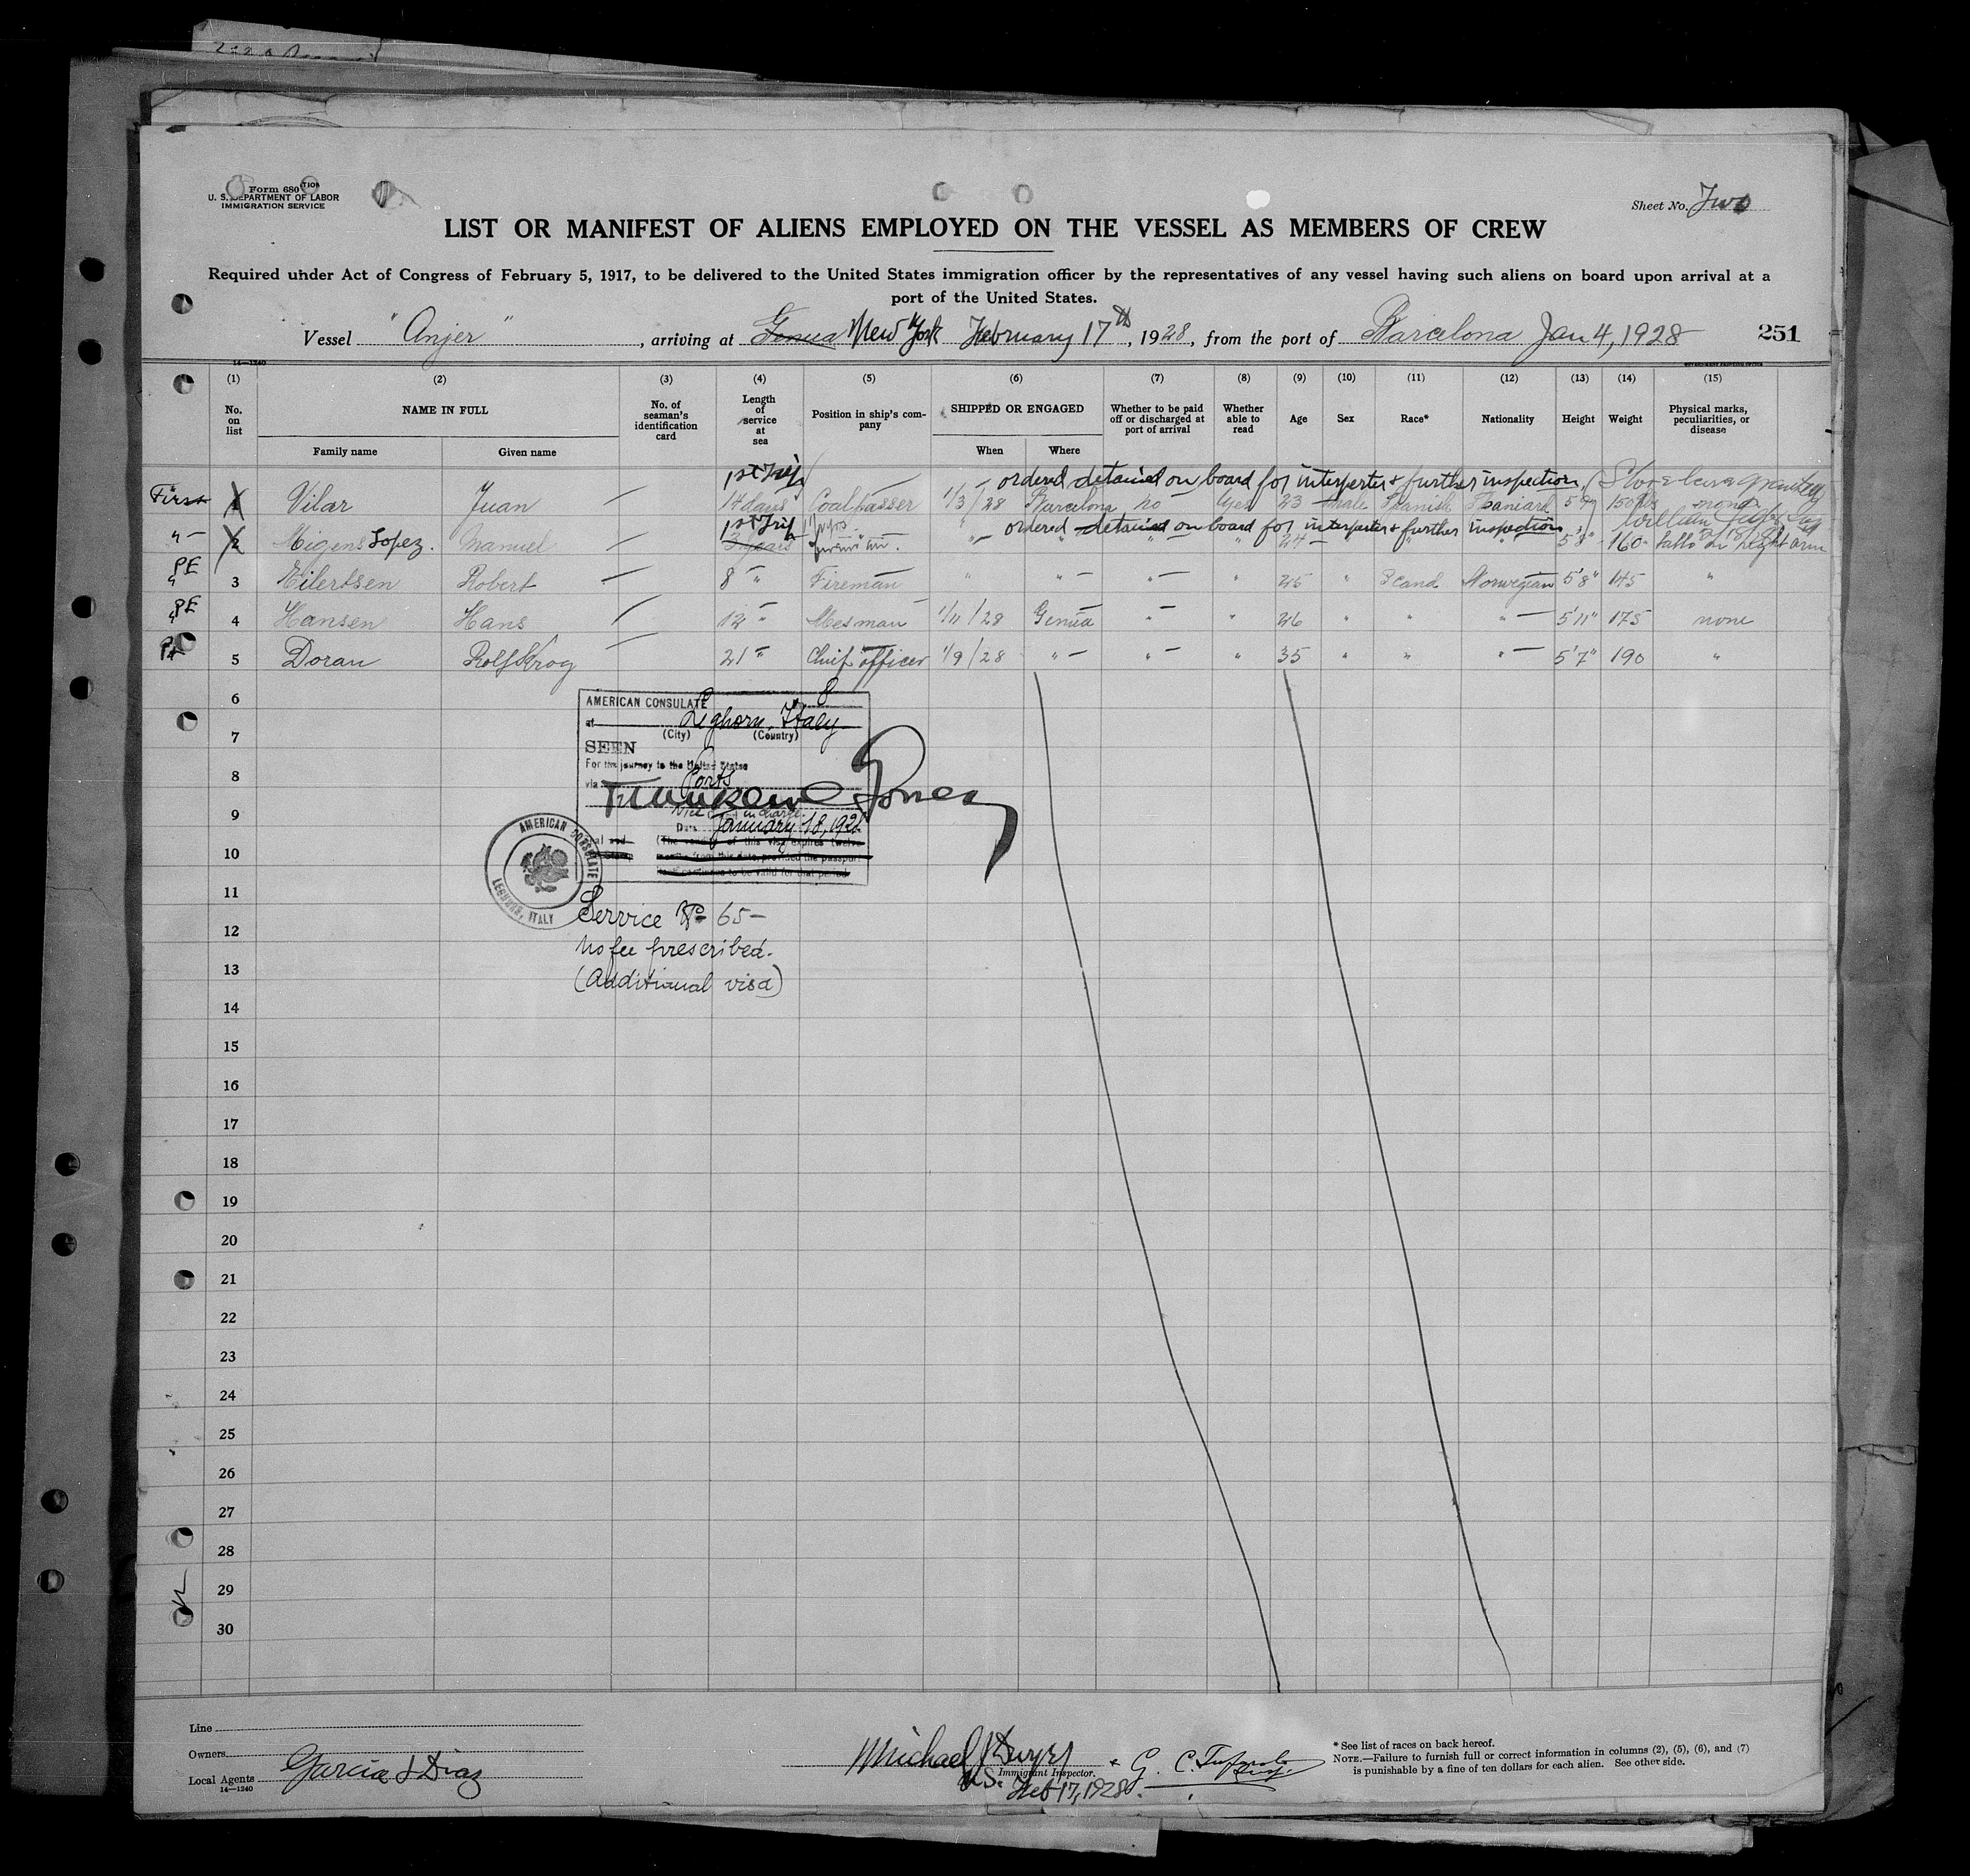 Form 680
U. S. DEPARTMENT OF LABOR
IMMIGRATION SERVICE
Sheet No. Two
LIST OR MANIFEST OF ALIENS EMPLOYED ON THE VESSEL AS MEMBERS OF CREW
Required under Act of Congress of February 5, 1917, to be delivered to the United States immigration officer by the representatives of any vessel having such aliens on board upon arrival at a
port of the United States.
Vessel "Anjer", arriving at Genua New York February 17th, 1928, from the port of Barcelona Jan 4, 1928 251
14—1240
(1) (2) (3) (4) (5) (6) (7) (8) (9) (10) (11) (12) (13) (14) (15)
No. on list NAME IN FULL No. of seaman's identification card Length of service at sea Position in ship's company SHIPPED OR ENGAGED Whether to be paid off or discharged at port of arrival Whether able to read Age Sex Race* Nationality Height Weight Physical marks, peculiarities, or disease
Family name Given name When Where
1st Trip ordered detained on board for interpreter & further inspection
First 1 Vilar Juan 14 days Coalpasser 1/3/28 Barcelona no Yes 23 male Spanish Spaniard 5'9" 150 lbs none
1st Trip ordered detained on board for interpreter & further inspection
"- 2 Migens Lopez. Manuel 3 years " " " " 24 5'8" 160 tatto on right arm
PE 3 Eilertsen Robert 8 " Fireman " " " " 25 " Scand Norwegian 5'8" 145 "
PE 4 Hansen Hans 12 " Mesman 1/11/28 Genua " " 26 " " " 5'11" 175 none
5 Doran Rolf Krog 21 " Chief officer 1/9/28 " " " 35 " " " 5'7" 190 "
6
7
8
9
10
11
12
13
14
15
16
17
18
19
20
21
22
23
24
25
26
27
28
29
30
AMERICAN CONSULATE
at Leghorn, Italy
(City) (Country)
SEEN
For the journey to the United States
via Ports
Date January 18, 1928
(The validity of this visa expires twelve
months from this date, provided the passport
continues to be valid for that period
AMERICAN CONSULATE
LEGHORN, ITALY
Service No 65-
No fee prescribed.
(Additional visa)
Line
Owners
Local Agents Garcia & Diaz
14—1240
Michael J Dwyer
Immigrant Inspector.
Feb 17, 1928
* See list of races on back hereof.
NOTE.—Failure to furnish full or correct information in columns (2), (5), (6), and (7)
is punishable by a fine of ten dollars for each alien. See other side.